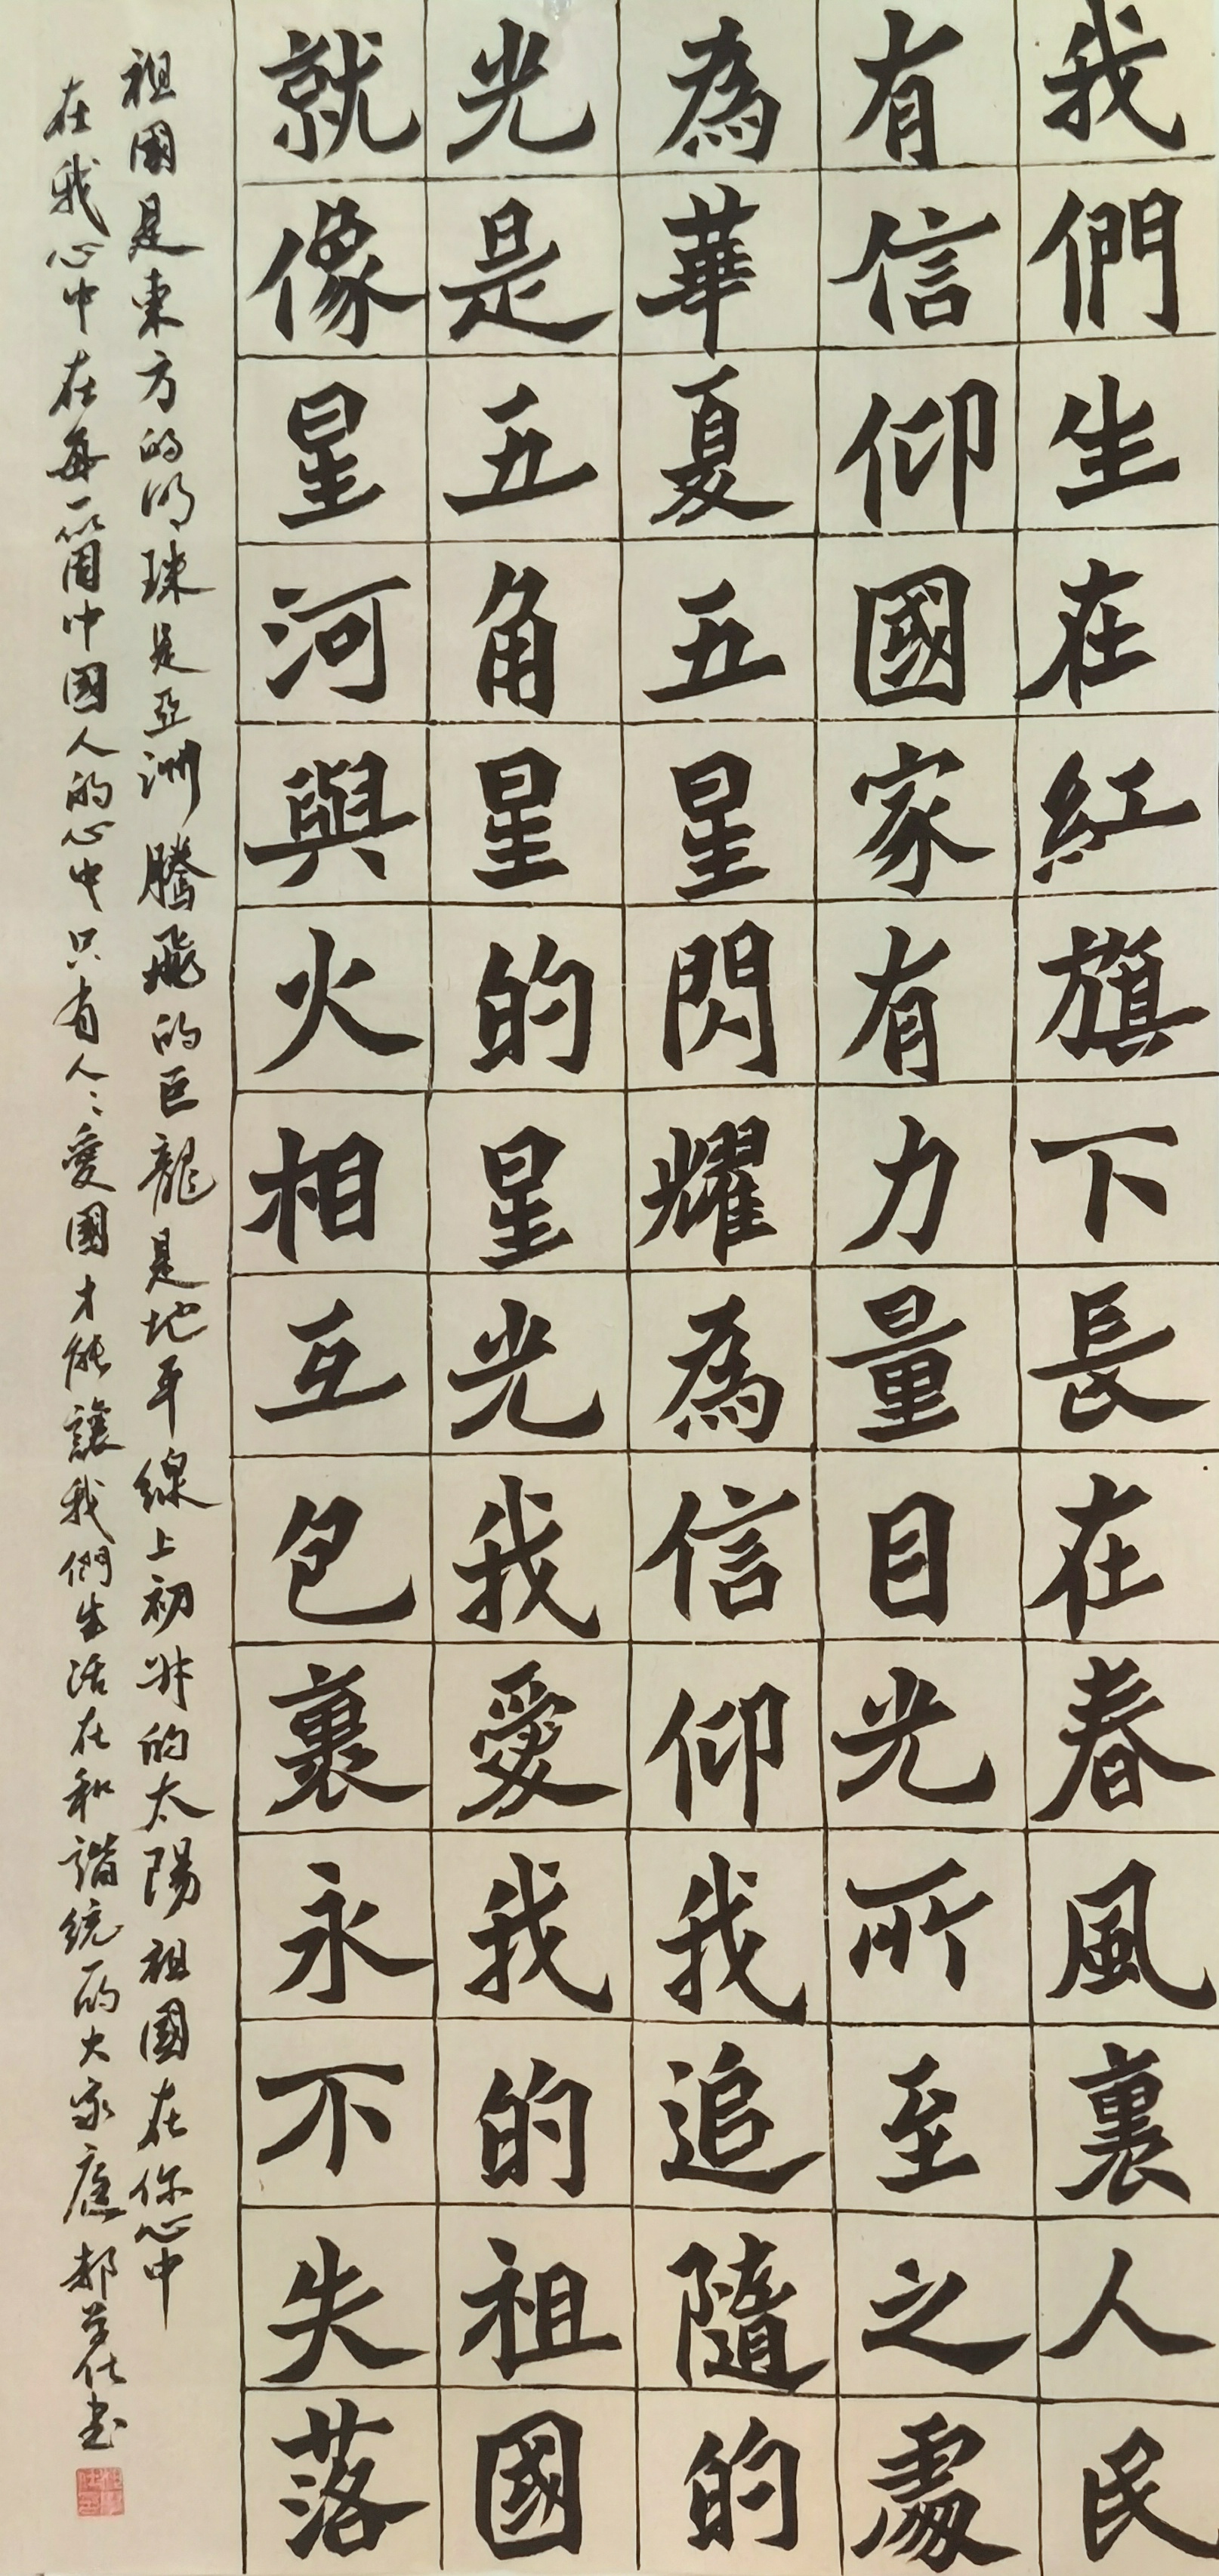 我們生在紅旗下長在春風裏人民
有信仰國家有力量目光所至之處
為華夏五星閃耀為信仰我追隨的
光是五角星的星光我愛我的祖國
就像星河與火相互包裹永不失落
祖國是東方的明珠是亞洲騰飛的巨龍是地平線上初升的太陽祖國在你心中
在我心中在每一箇中國人的心中只有人人愛國才能讓我們生活在和諧統一的大家庭郝 仕書